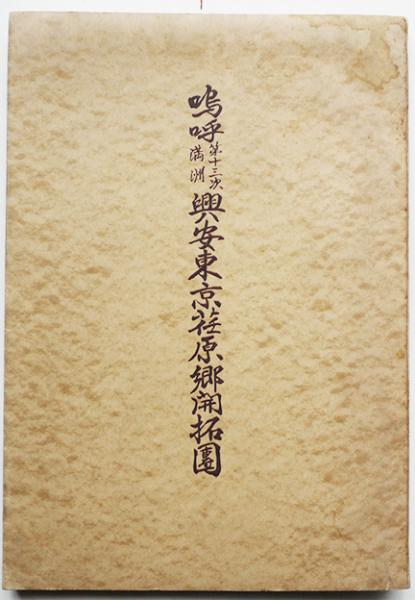 嗚呼
第十三次
満洲
興安東京荏原郷開拓團